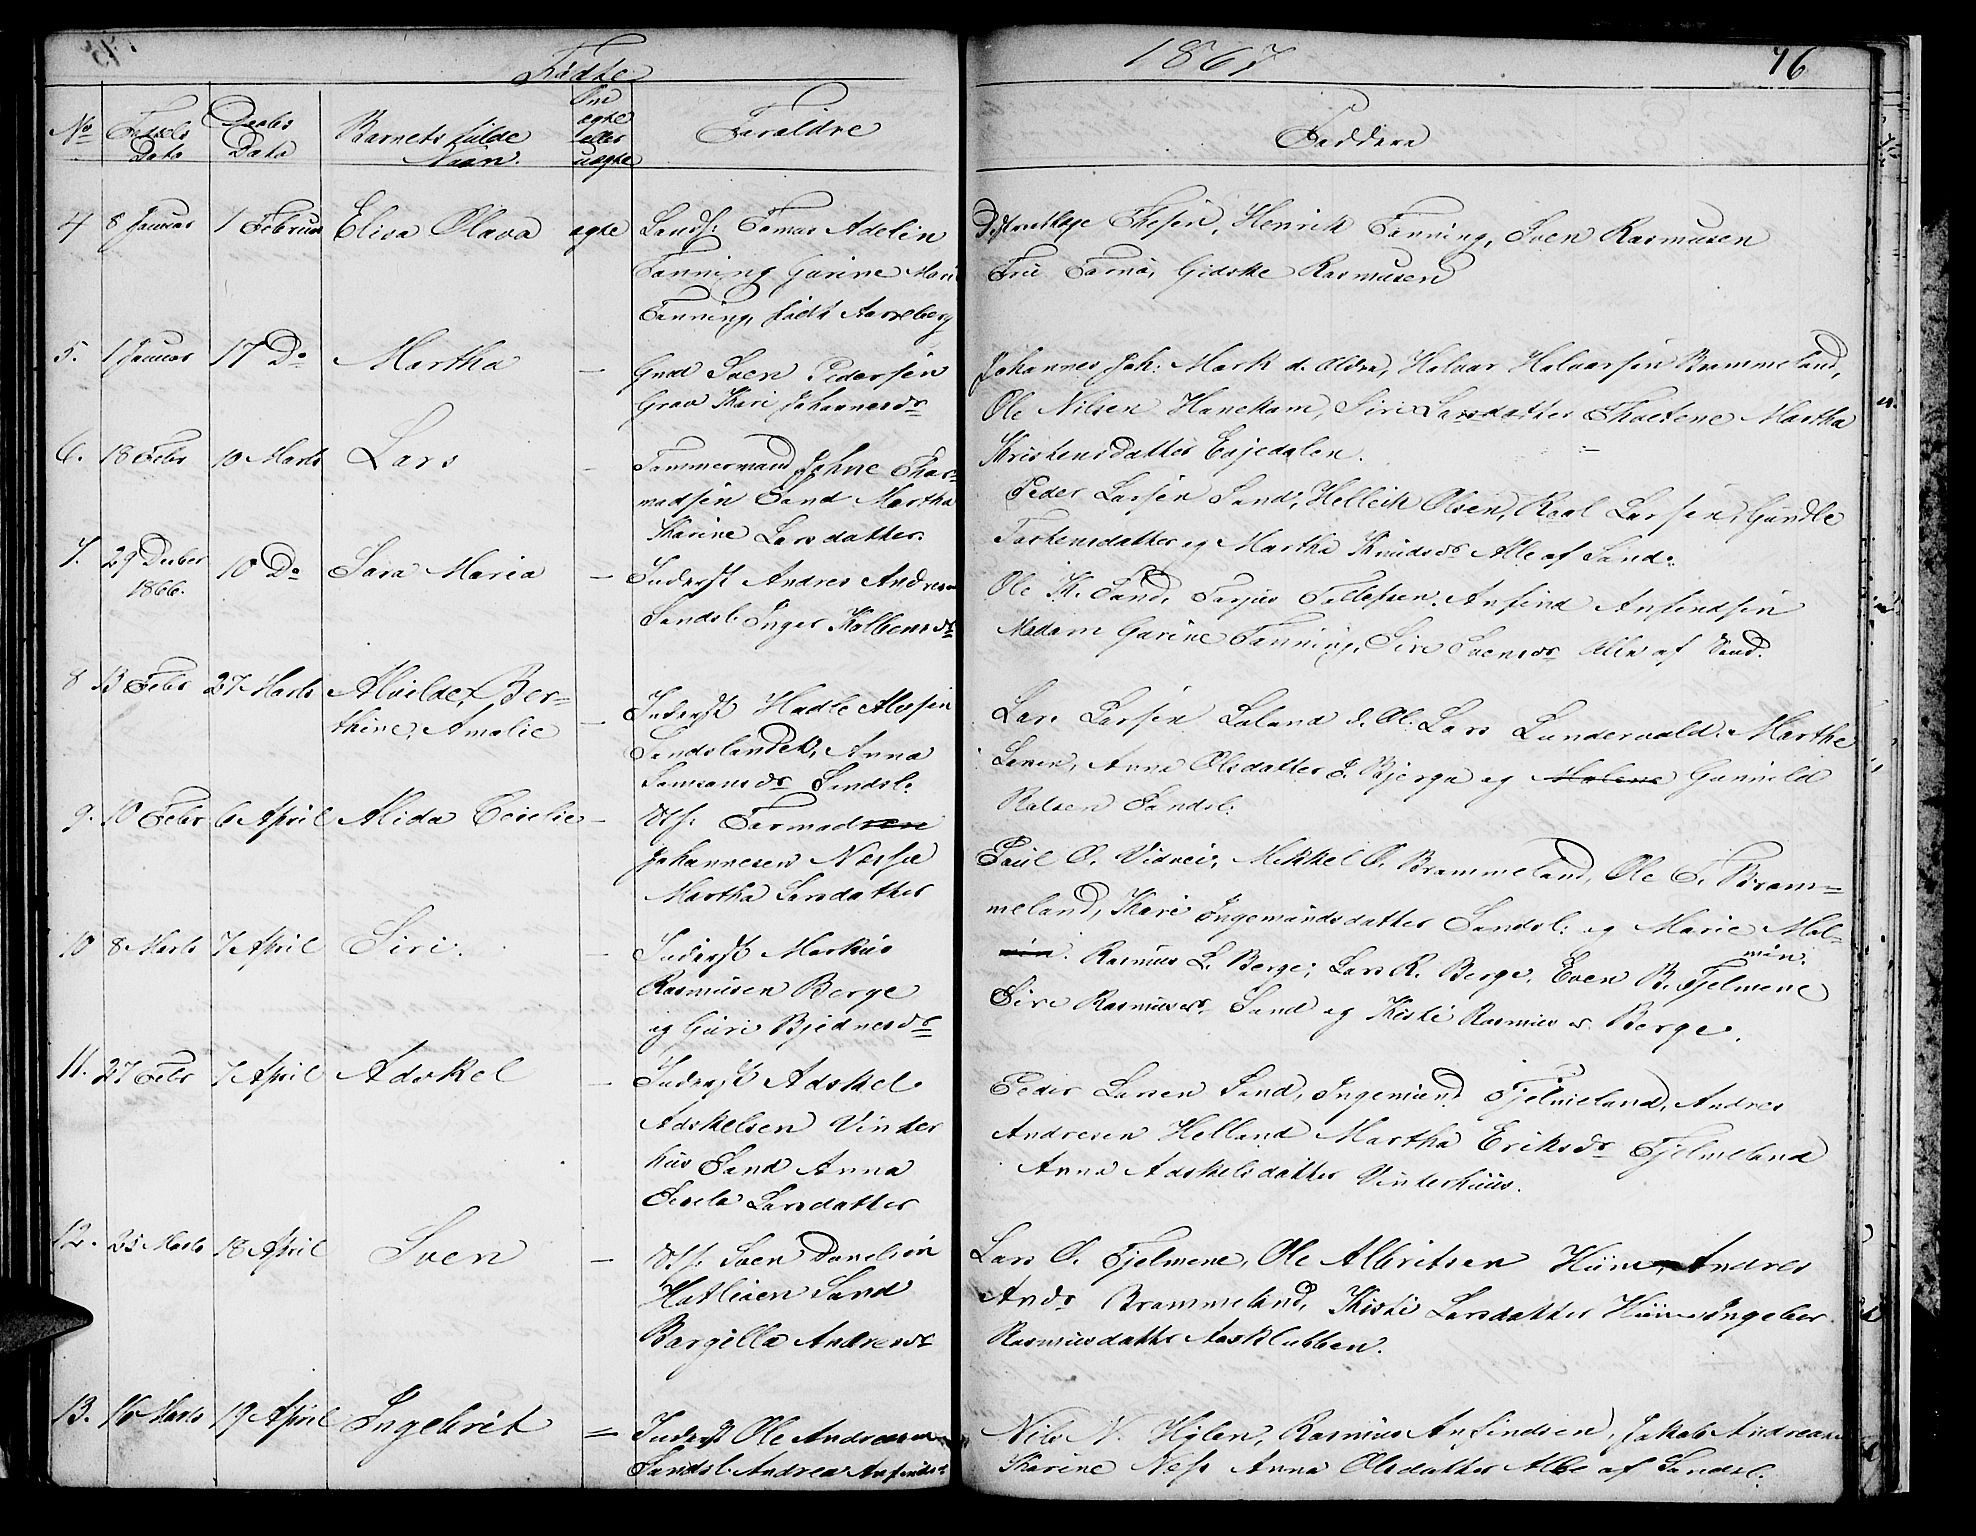 Födte
1867
76
No
Fødsels Dato
Daabs Dato
Barnets fulde Navn.
Om ægte eller uægte
Foraldre
Faddere
4 8 Januar 1 Februar Elisa Olava ægte Landh. Tomas Adelin
Fanning Garine Marie
Fanning, födt Aarreberg
Henrik Fanning, Sven Rasmusen
Gidske Rasmusen
5. 1 Januar 17 Do Martha — Gmd Sven Pedersen
Grav Kari Johannesdr
Johannes Joh: Mark d. Oldre, Halvar Halvarsen Brommeland,
Ole Nilsen Hanekam, Siri Larsdatter Martha
Kristensdatter Eijedalen.
6. 18 Febr 10 Marts Lars — Tömmermand Johne Thor-
madsen Sand Martha
Karine Larsdatter.
Peder Larsen Sand, Helleik Olsen, Roal Larsen, Gundle
Torkensdatter og Martha Knudsdr Alle af Sand.
7. 29 Deceber 1866. 10 Do Sara Maria — Inderst Andres Andresen
Sandsl. Inger Kolbensdr
Ole K. Sand, Tarjus Tollefsen, Anfind Anfindsen
Madam Garine Fanning, Siri Svensdr Alle af Sand.
8 13 Febr 27 Marts Alvilde, Ber-
thine, Amalie — Inderst Hadle Alefsen
Sandslandet, Anna
Samsansdr Sandsl.
Lars Larsen Laland d. Æl. Lars Lundervald. Marthe
Larsen, Anna Olsdatter J. Bjerga og Malene Gunnild
Ratsen Sandsl.
9. 10 Febr 6 April Alida Cecelie — Hsf. Tormod
Johannesen
Martha Larsdatter
Paul O. Vidvei, Mikkel O. Brommeland, Ole T. Bram-
meland, Kari Ingemundsdatter Sandsl. og Marie Mal-
min.
10 8 Marts 7 April Siri. — Inderst Markus
Rasmusen Berge
og Guri Bjednesdr
Rasmus L. Berge, Lars R. Berge, Even B. Fjelmene
Siri Rasmusdr Sand og Kisti Rasmusdr. Berge.
11. 27 Febr 7 April Adskel — Inderst Adskel
Adskelsen Vinter
hus Sand Anna
Secela Larsdatter
Peder Larsen Sand, Ingemund Fjelmeland, Andres
Andresen Helland Martha Eriksdr Fjelmeland
Anna Adskelsdatter Vinterhuus.
12. 25 Marts 18 April Sven — Hsf. Sven Danelsön
Hatleien Sand
Bargilla Andresdr
Lars O. Fjelmene, Ole Albritsen Hiim, Andres
Andr Brommeland, Kisti Larsdatter Hiim Ingeber
Rasmusdatter Aasklubben.
13. 16 Marts 19 April Ingebrit — Inderst Ole Andreasen
Sandsl. Andrea Anfindsdr
Nils N. Hylen, Rasmus Anfindsen, Jakob Andreasen
Karine Næss Anna Olsdatter Alle af Sandsl.